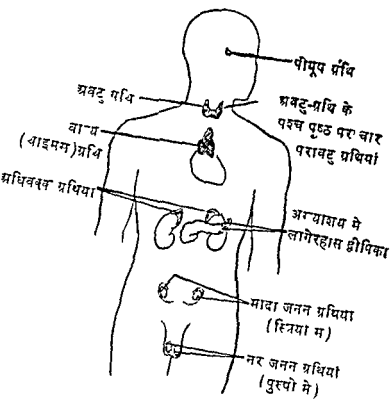 पीयूष ग्रंथि
अवटु ग्रंथि
अवटु-ग्रंथि के
पश्च पृष्ठ पर चार
परावटु ग्रंथियां
बाल्य
(थाइमस) ग्रंथि
अधिवृक्क ग्रंथियां
अग्न्याशय मे
लागेरहास द्वीपिका
मादा जनन ग्रंथियां
(स्त्रियों म)
नर जनन ग्रंथियां
(पुरुषों मे)